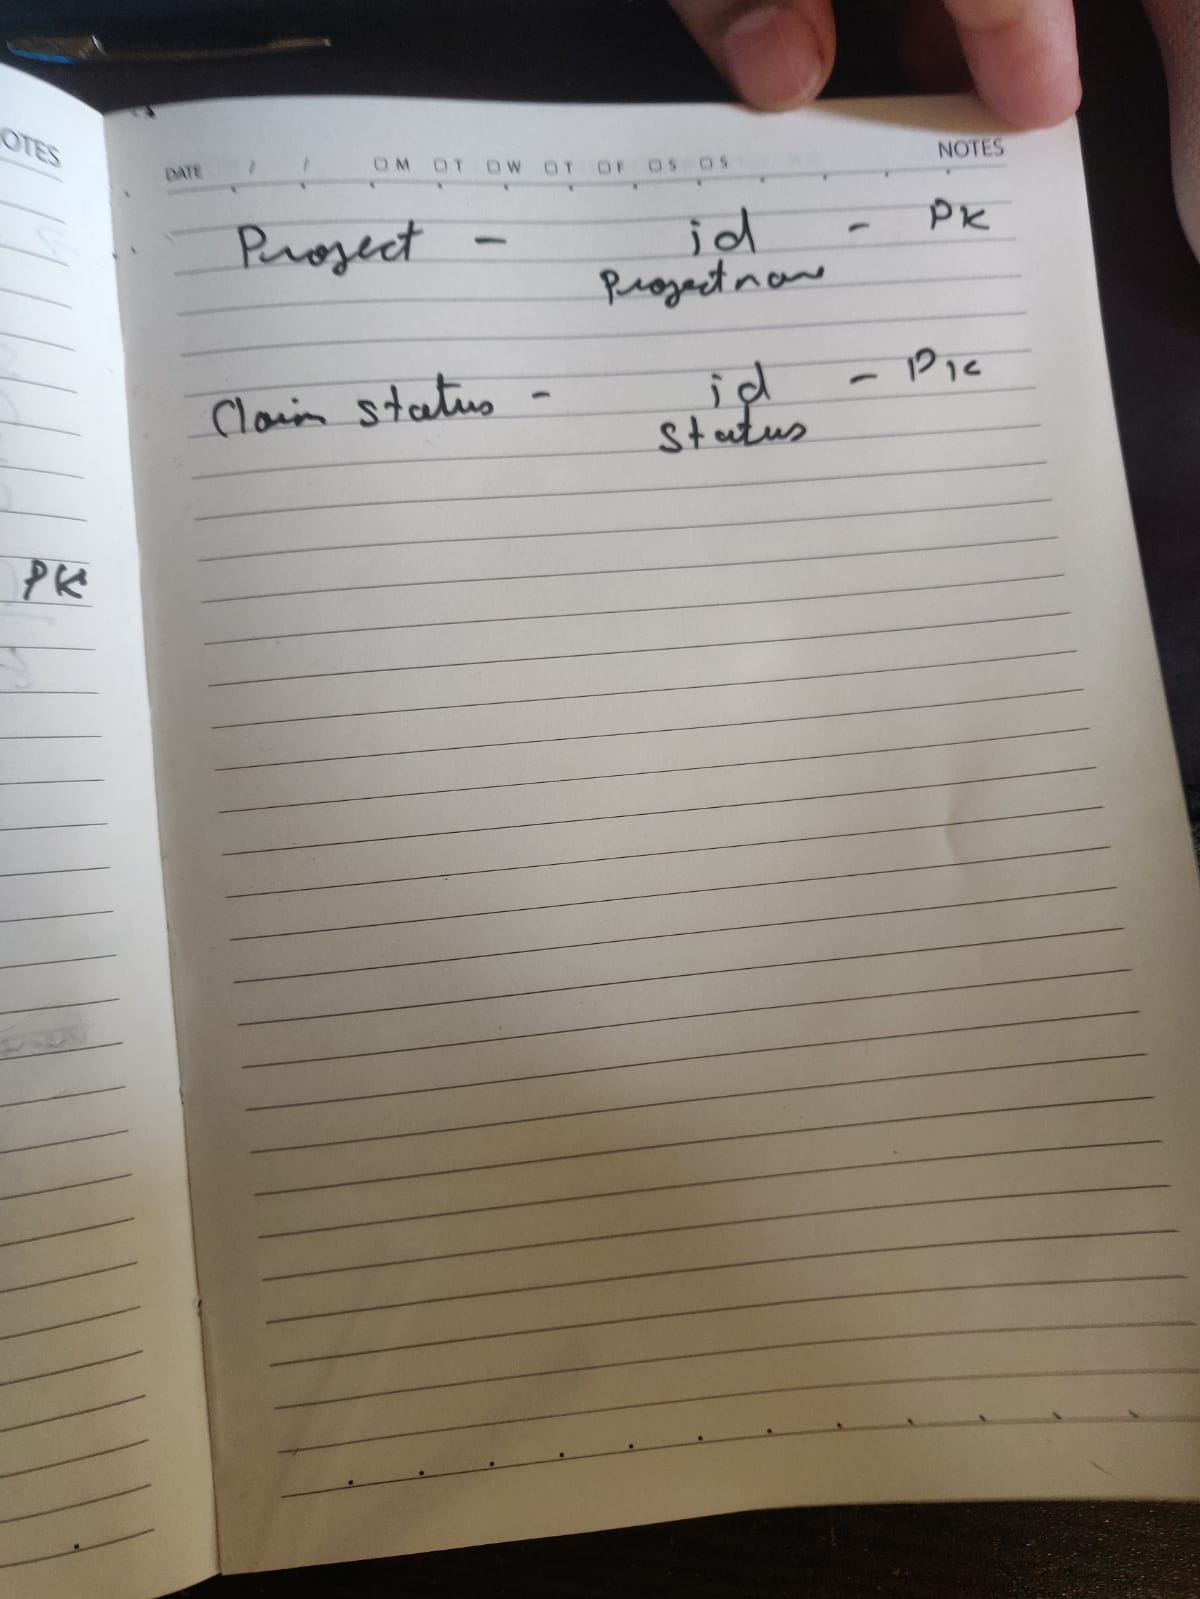 OTES
PK
DATE / / M T W T F S S NOTES
Project - id - PK
Projectname
Claim status - id - PK
Status